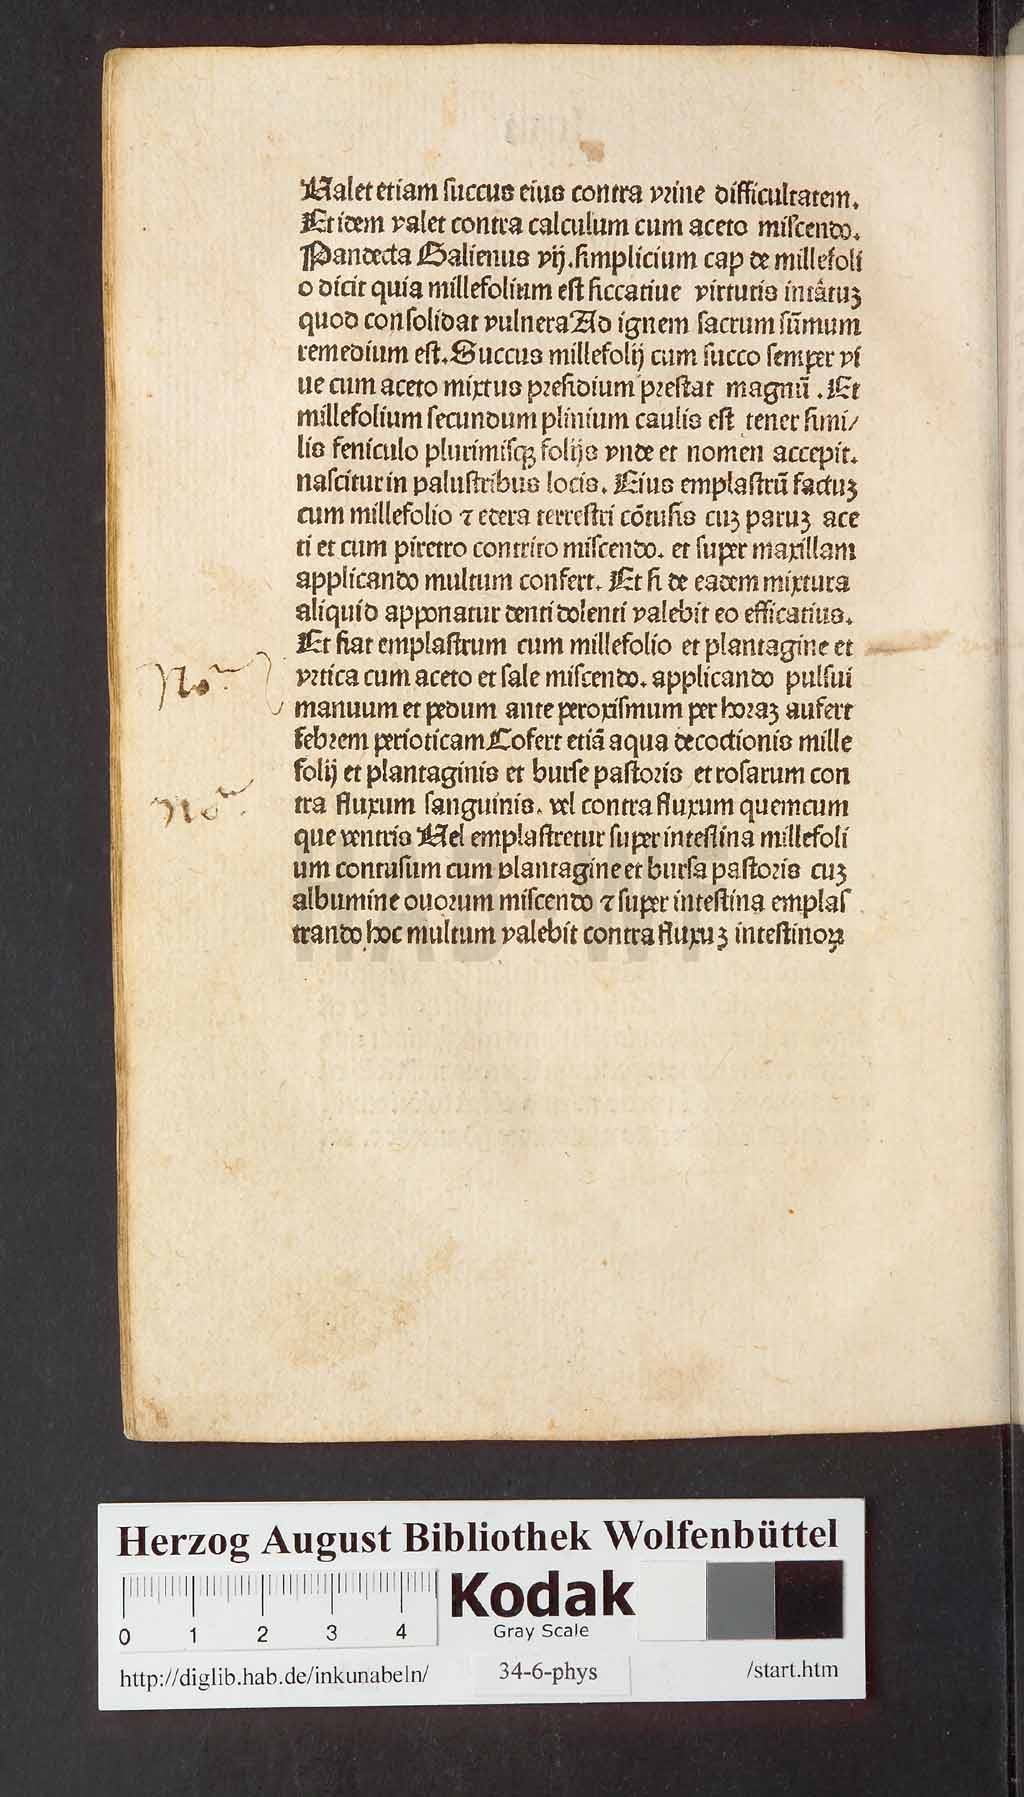 Ualet etiam succus eius contra vrine difficultatem.
Et idem valet contra calculum cum aceto miscendo.
Pandecta Galienus vij. simplicium cap de millefoli
o dicit quia millefolium est siccatiue virtutis intātuꝫ
quod consolidat vulnera Ad ignem sacrum sūmum
remedium est. Succus millefolij cum succo semper vi
ue cum aceto mixtus presidium prestat magnū . Et
millefolium secundum plinium caulis est tener simi/
lis feniculo plurimisqꝫ folijs vnde et nomen accepit.
nascitur in palustribus locis. Eius emplastrū factuꝫ
cum millefolio ⁊ edera terrestri cōtusis cuꝫ paruꝫ ace
ti et cum piretro contrito miscendo. et super maxillam
applicando multum confert. Et si de eadem mixtura
aliquid apponatur denti dolenti valebit eo efficatius.
Et fiat emplastrum cum millefolio et plantagine et
vrtica cum aceto et sale miscendo. applicando pulsui
manuum et pedum ante peroxismum per horaꝫ aufert
febrem perioticam Cofert etiā aqua decoctionis mille
folij et plantaginis et burse pastoris et rosarum con
tra fluxum sanguinis. vel contra fluxum quemcum
que ventris Uel emplastretur super intestina millefoli
um contusum cum plantagine et bursa pastoris cuꝫ
albumine ouorum miscendo ⁊ super intestina emplas
trando hoc multum valebit contra fluxuꝫ intestinoꝝ
HAB WF
Herzog August Bibliothek Wolfenbüttel
Kodak
Gray Scale
0 1 2 3 4
http://diglib.hab.de/inkunabeln/ 34-6-phys /start.htm